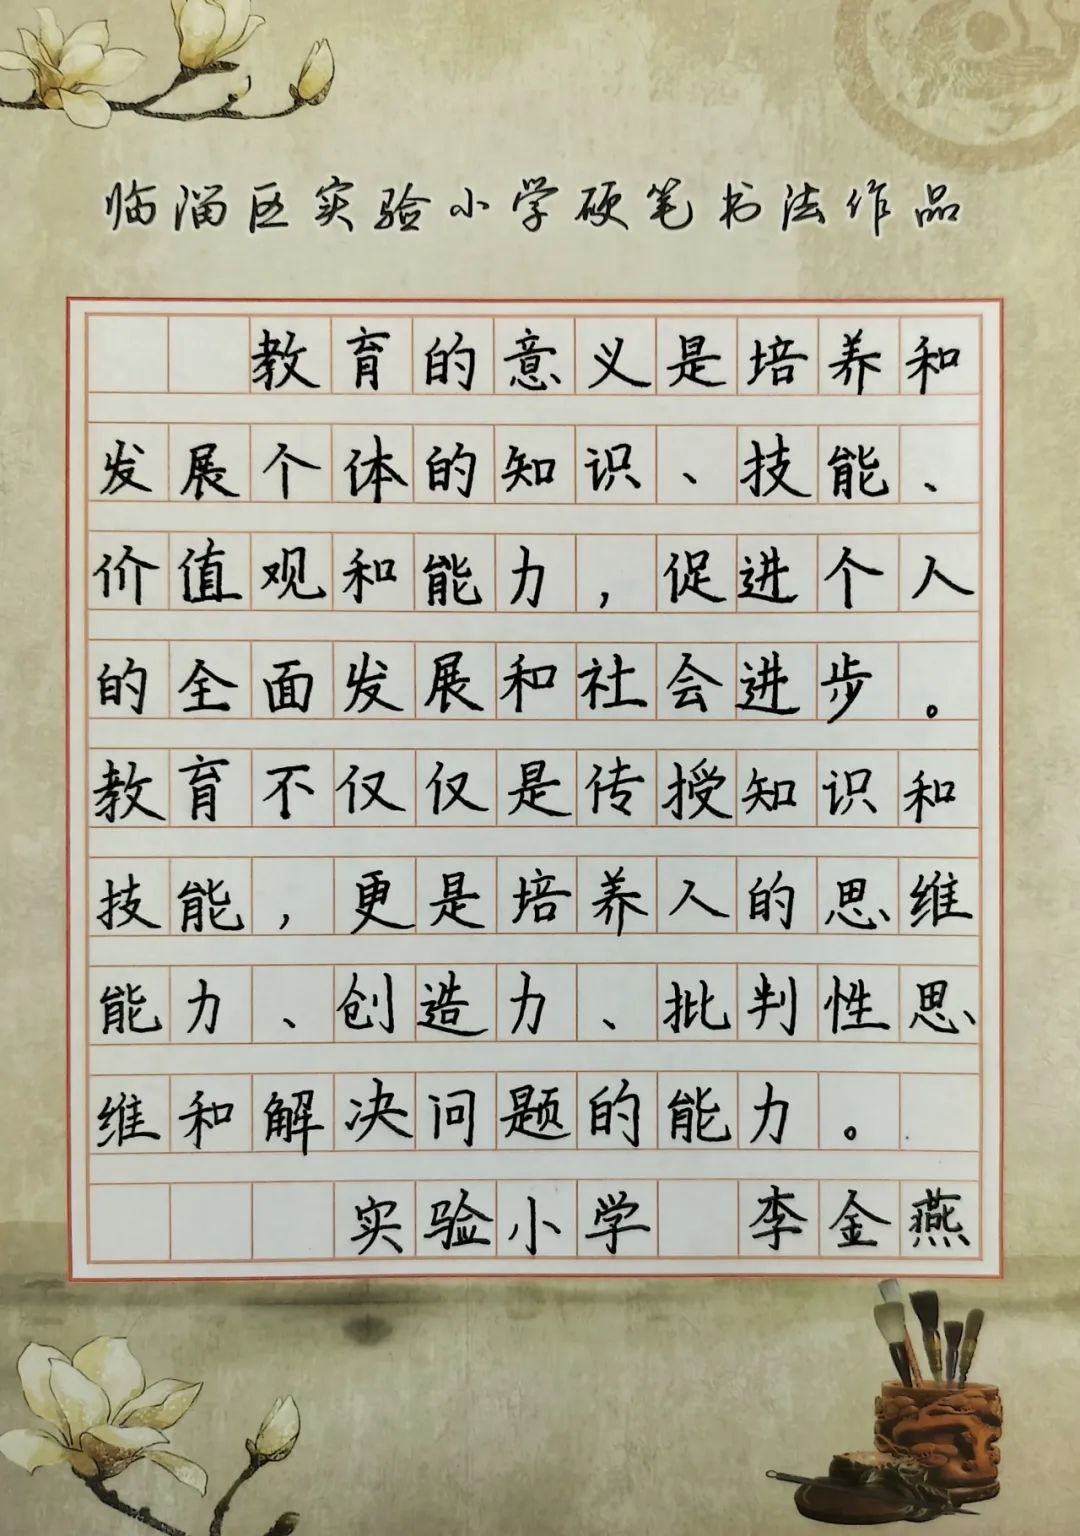 临淄区实验小学硬笔书法作品
教育的意义是培养和
发展个体的知识、技能、
价值观和能力，促进个人
的全面发展和社会进步。
教育不仅仅是传授知识和
技能，更是培养人的思维
能力、创造力、批判性思
维和解决问题的能力。
实验小学 李金燕